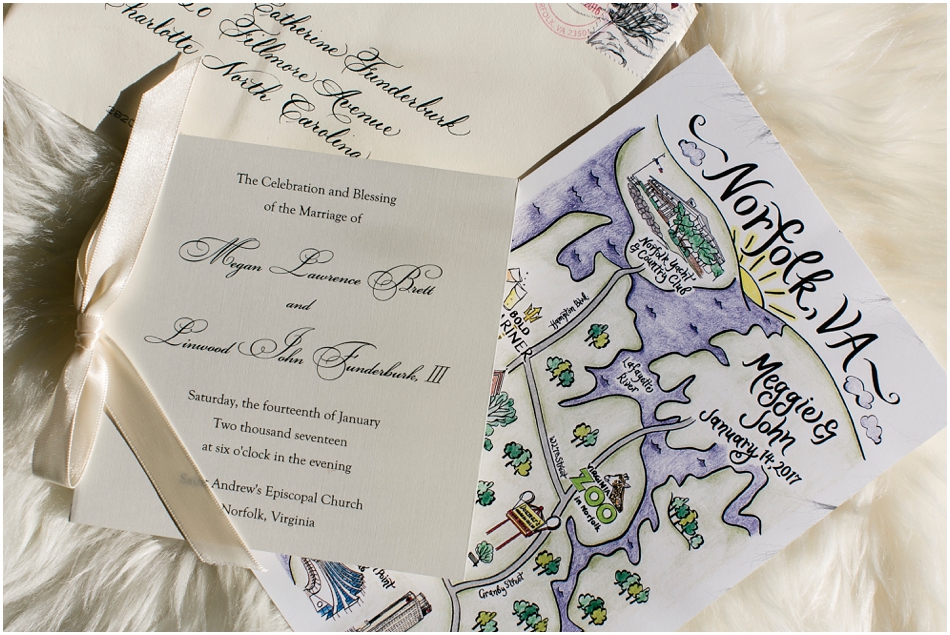 Catherine Funderburk
20 Fillmore Avenue
Charlotte North Carolina
2016
NORFOLK, VA 2350
The Celebration and Blessing
of the Marriage of
Megan Lawrence Brett
and
Linwood John Funderburk, III
Saturday, the fourteenth of January
Two thousand seventeen
at six o'clock in the evening
Saint Andrew's Episcopal Church
Norfolk, Virginia
Norfolk, VA
Norfolk Yacht
& Country Club
BOLD
RINER
Hampton Blvd
Lafayette
River
Meggie &
John
January 14, 2017
W 27th Street
Virginia
ZOO
in Norfolk
Granby Street
Point